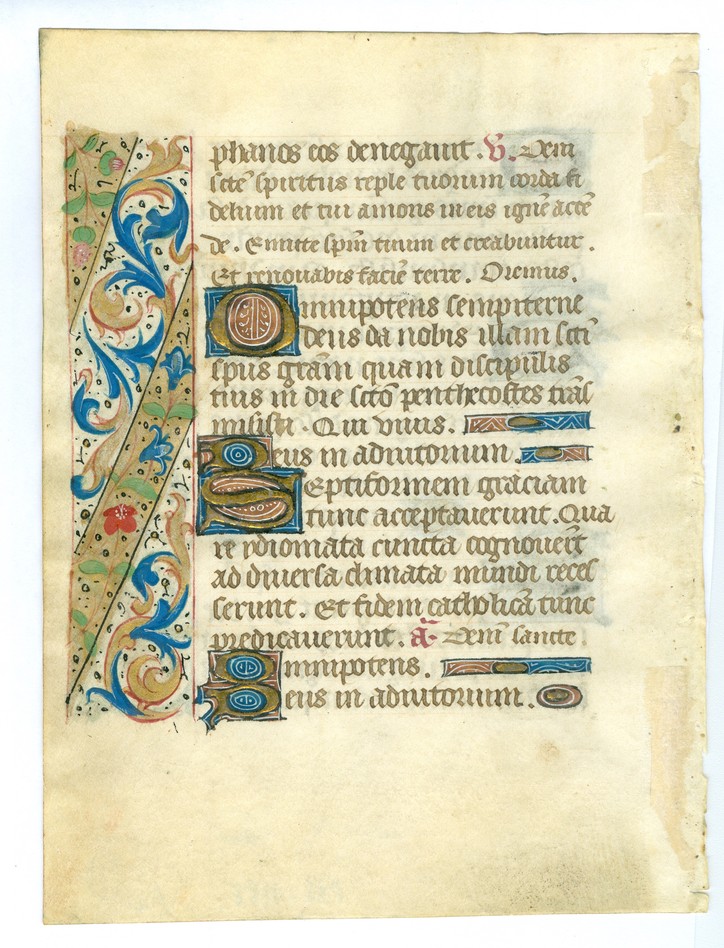 phanos eos denegauit. V. Veni
scte spiritus reple tuorum corda fi
delium et tui amoris in eis igne acce
de. Emitte spm tuum et creabuntur.
Et renouabis facie terre. Oremus.
Omnipotens sempiterne
deus da nobis illam scti
spus gram quam discipulis
tuis in die scto penthecostes tras
misisti. Qui viuis.
Deus in adiutorium.
Septiformem graciam
tunc acceptauerunt. Qua
re ydiomata cuncta cognouert
ad diuersa climata mundi reces
serunt. Et fidem catholica tunc
predicauerunt. a Veni sancte
Omnipotens.
Deus in adiutorium.